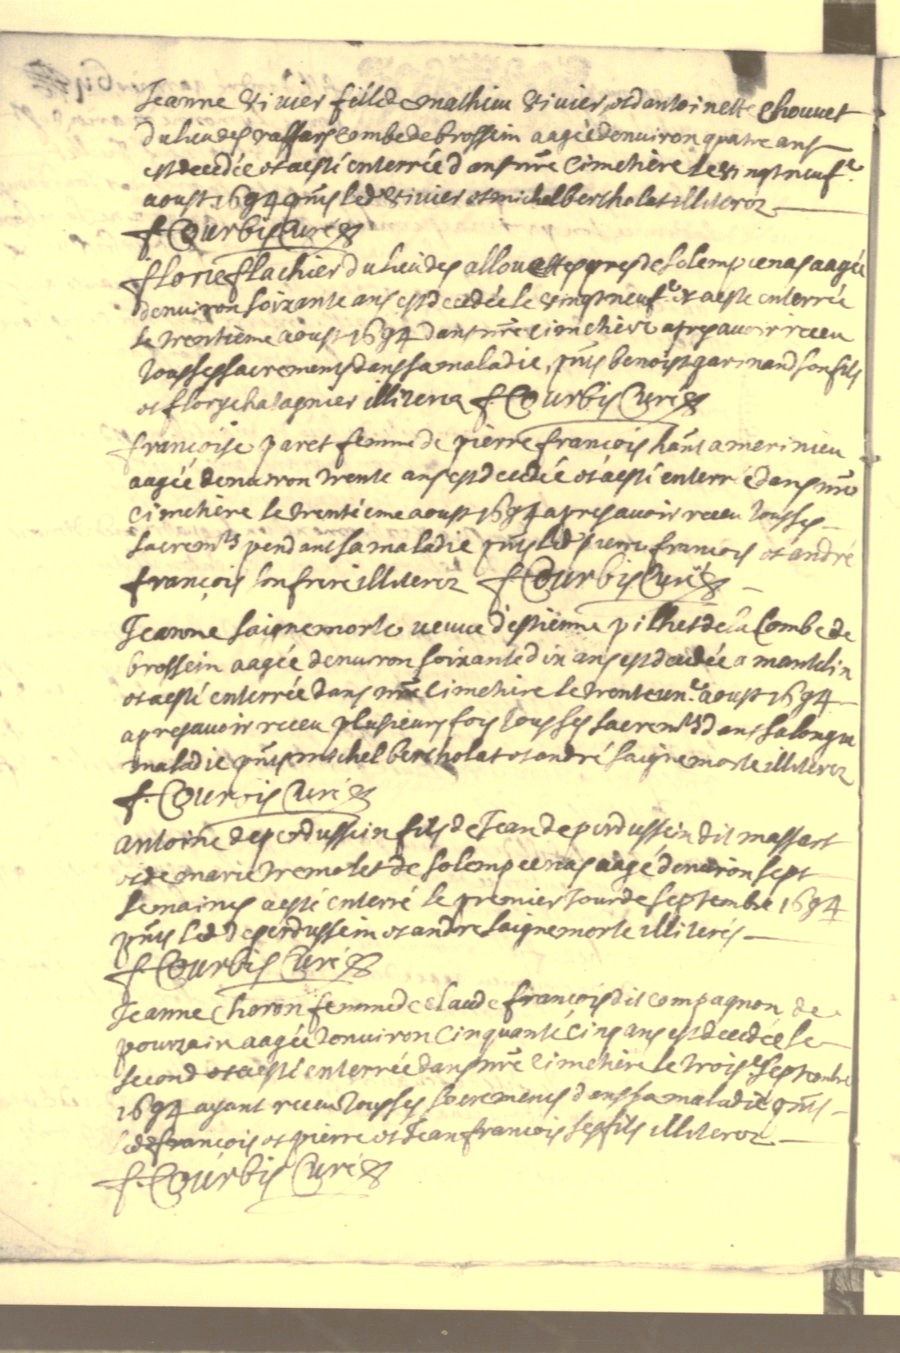 Jeanne vivier fille de mathieu vivier et dantoinette Chouvet
du lieu des vassars combe de brossein aagée denviron quatre ans
est decedée et a esté enterrée dans nre Cimetière le vingt neufe.
aoust 1694 pnts led vivier et michel bertholat illiterez
f. Courbis Curé
florie flachier du lieu des allouettes pres de solempcenas aagée
denviron soixante ans est decedée le vingt neufe et a esté enterrée
le trentième aoust 1694 dans nre cimetière apres avoir receu
tous ses sacrements dans sa maladie, pnts benoist parmand son fils
et flory chatagnier illiterez f. Courbis Curé
françoise paret femme de pierre françois hant amerinieu
aagée denviron trente ans est decedée et a esté enterrée dans nre
Cimetière le trentième aoust 1694 apres avoir receu tous ses
sacremts pendant sa maladie pnts led pierre françois et andré
françois son frere illiterez f. Courbis Curé
Jeanne saignemorte veuve d'estienne pilhet de la Combe de
brossein aagée denviron soixante dix ans est decedée a mantelin
et a esté enterrée dans nre Cimetière le trente une aoust 1694
apres avoir receu plusieurs fois tous ses sacremts dans sa longue
maladie pnts michel bertholat et andré saignemorte illiterez
f. Courbis Curé
antoine deperdussin fils de Jean deperdussin dit massart
et de marie tremolet de solempcenas aagé denviron sept
semaines a esté enterré le premier Jour de septembre 1694
pnts led deperdussin et andre saignemorte illiterés
f. Courbis Curé
Jeanne Choron femme de claude françois dit compagnon de
pourzain aagée denviron Cinquante Cinq ans est decedée le
second et a esté enterrée dans nre cimetière le troise septembre
1694 ayant receu tous ses sacrements dans sa maladie pnts
led françois et pierre et Jean françois ses fils illiterez
f. Courbis Curé